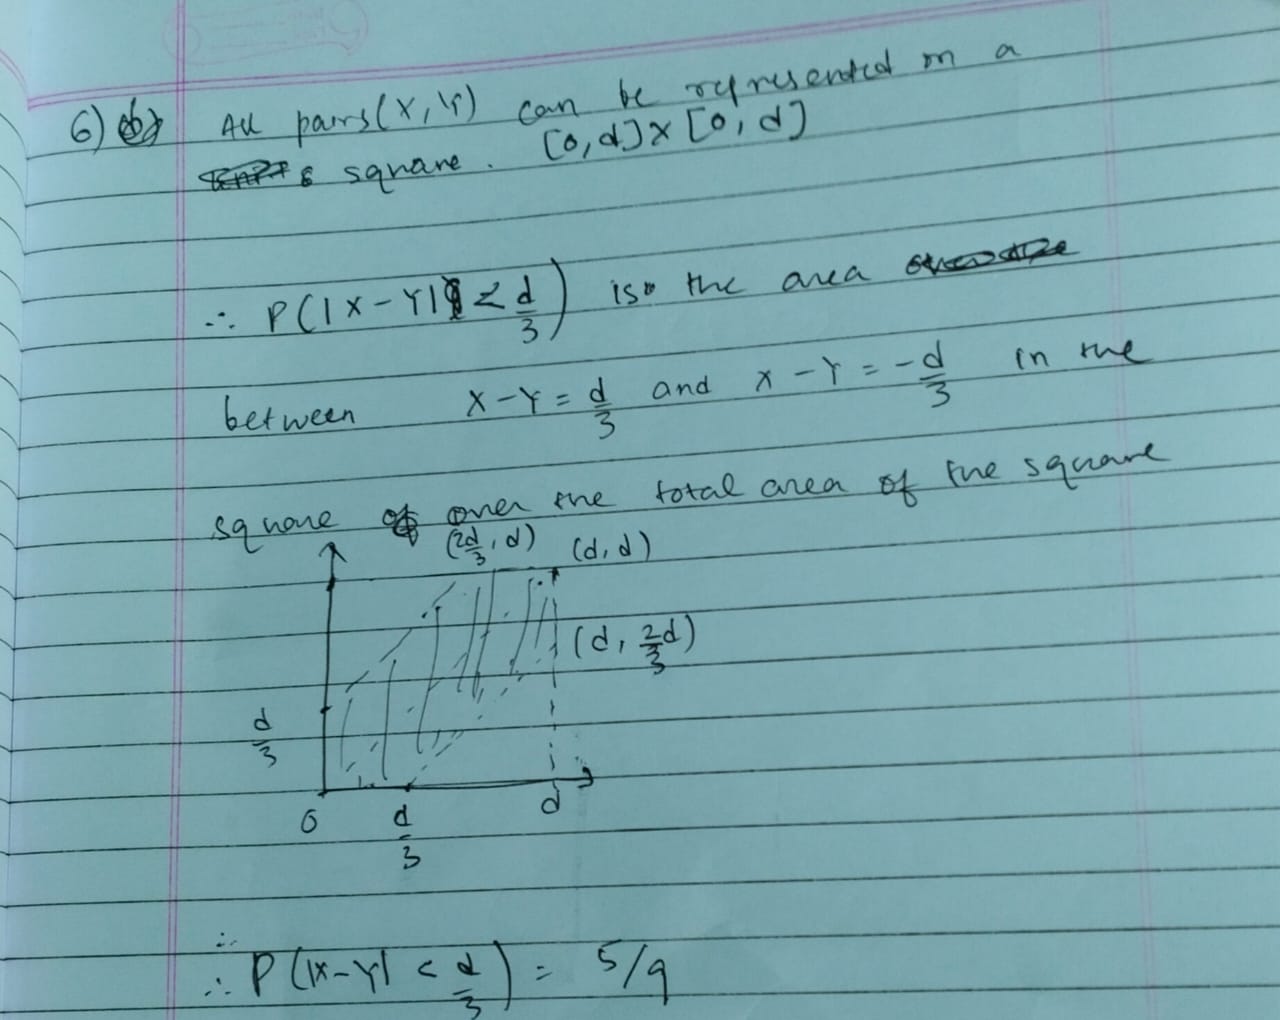 6) All pairs (X, Y) can be represented on a
square. [0, d] x [0, d]
∴ P(|X - Y| < d/3) is the area
between X - Y = d/3 and X - Y = -d/3 in the
square over the total area of the square
(2d/3, d) (d, d)
(d, 2/3 d)
d/3
0 d/3 d
∴ P(|X - Y| < d/3) = 5/9